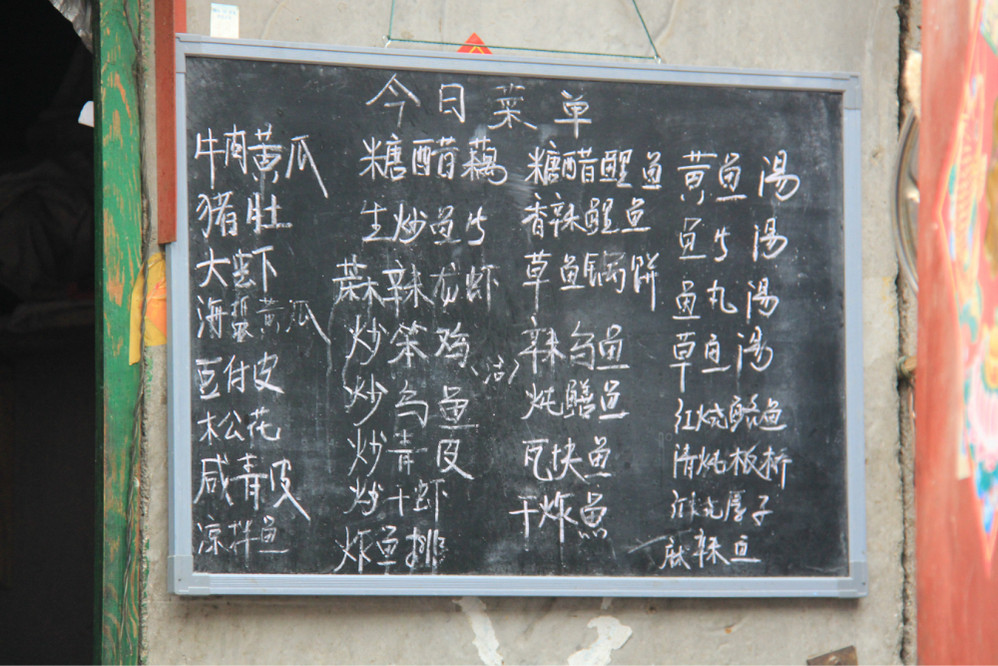 今日菜单
牛肉黄瓜
猪肚
大虾
海蜇黄瓜
豆付皮
松花
咸青皮
凉拌鱼
糖醋藕
生炒鱼片
麻辣龙虾
炒笨鸡(活)
炒鱼
炒青皮
炒干虾
炸鱼排
糖醋鲤鱼
香辣鲤鱼
草鱼锅饼
辣鱼
炖鳝鱼
瓦块鱼
干炸鱼
黄鱼汤
鱼片汤
鱼丸汤
草鱼汤
红烧鱼
清炖板桥
子
麻辣鱼